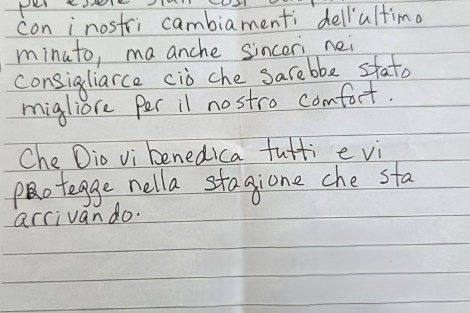 per essere stati così
con i nostri cambiamenti dell'ultimo
minuto, ma anche sinceri nei
consigliarce ciò che sarebbe stato
migliore per il nostro comfort.
Che Dio vi benedica tutti e vi
protegge nella stagione che sta
arrivando.